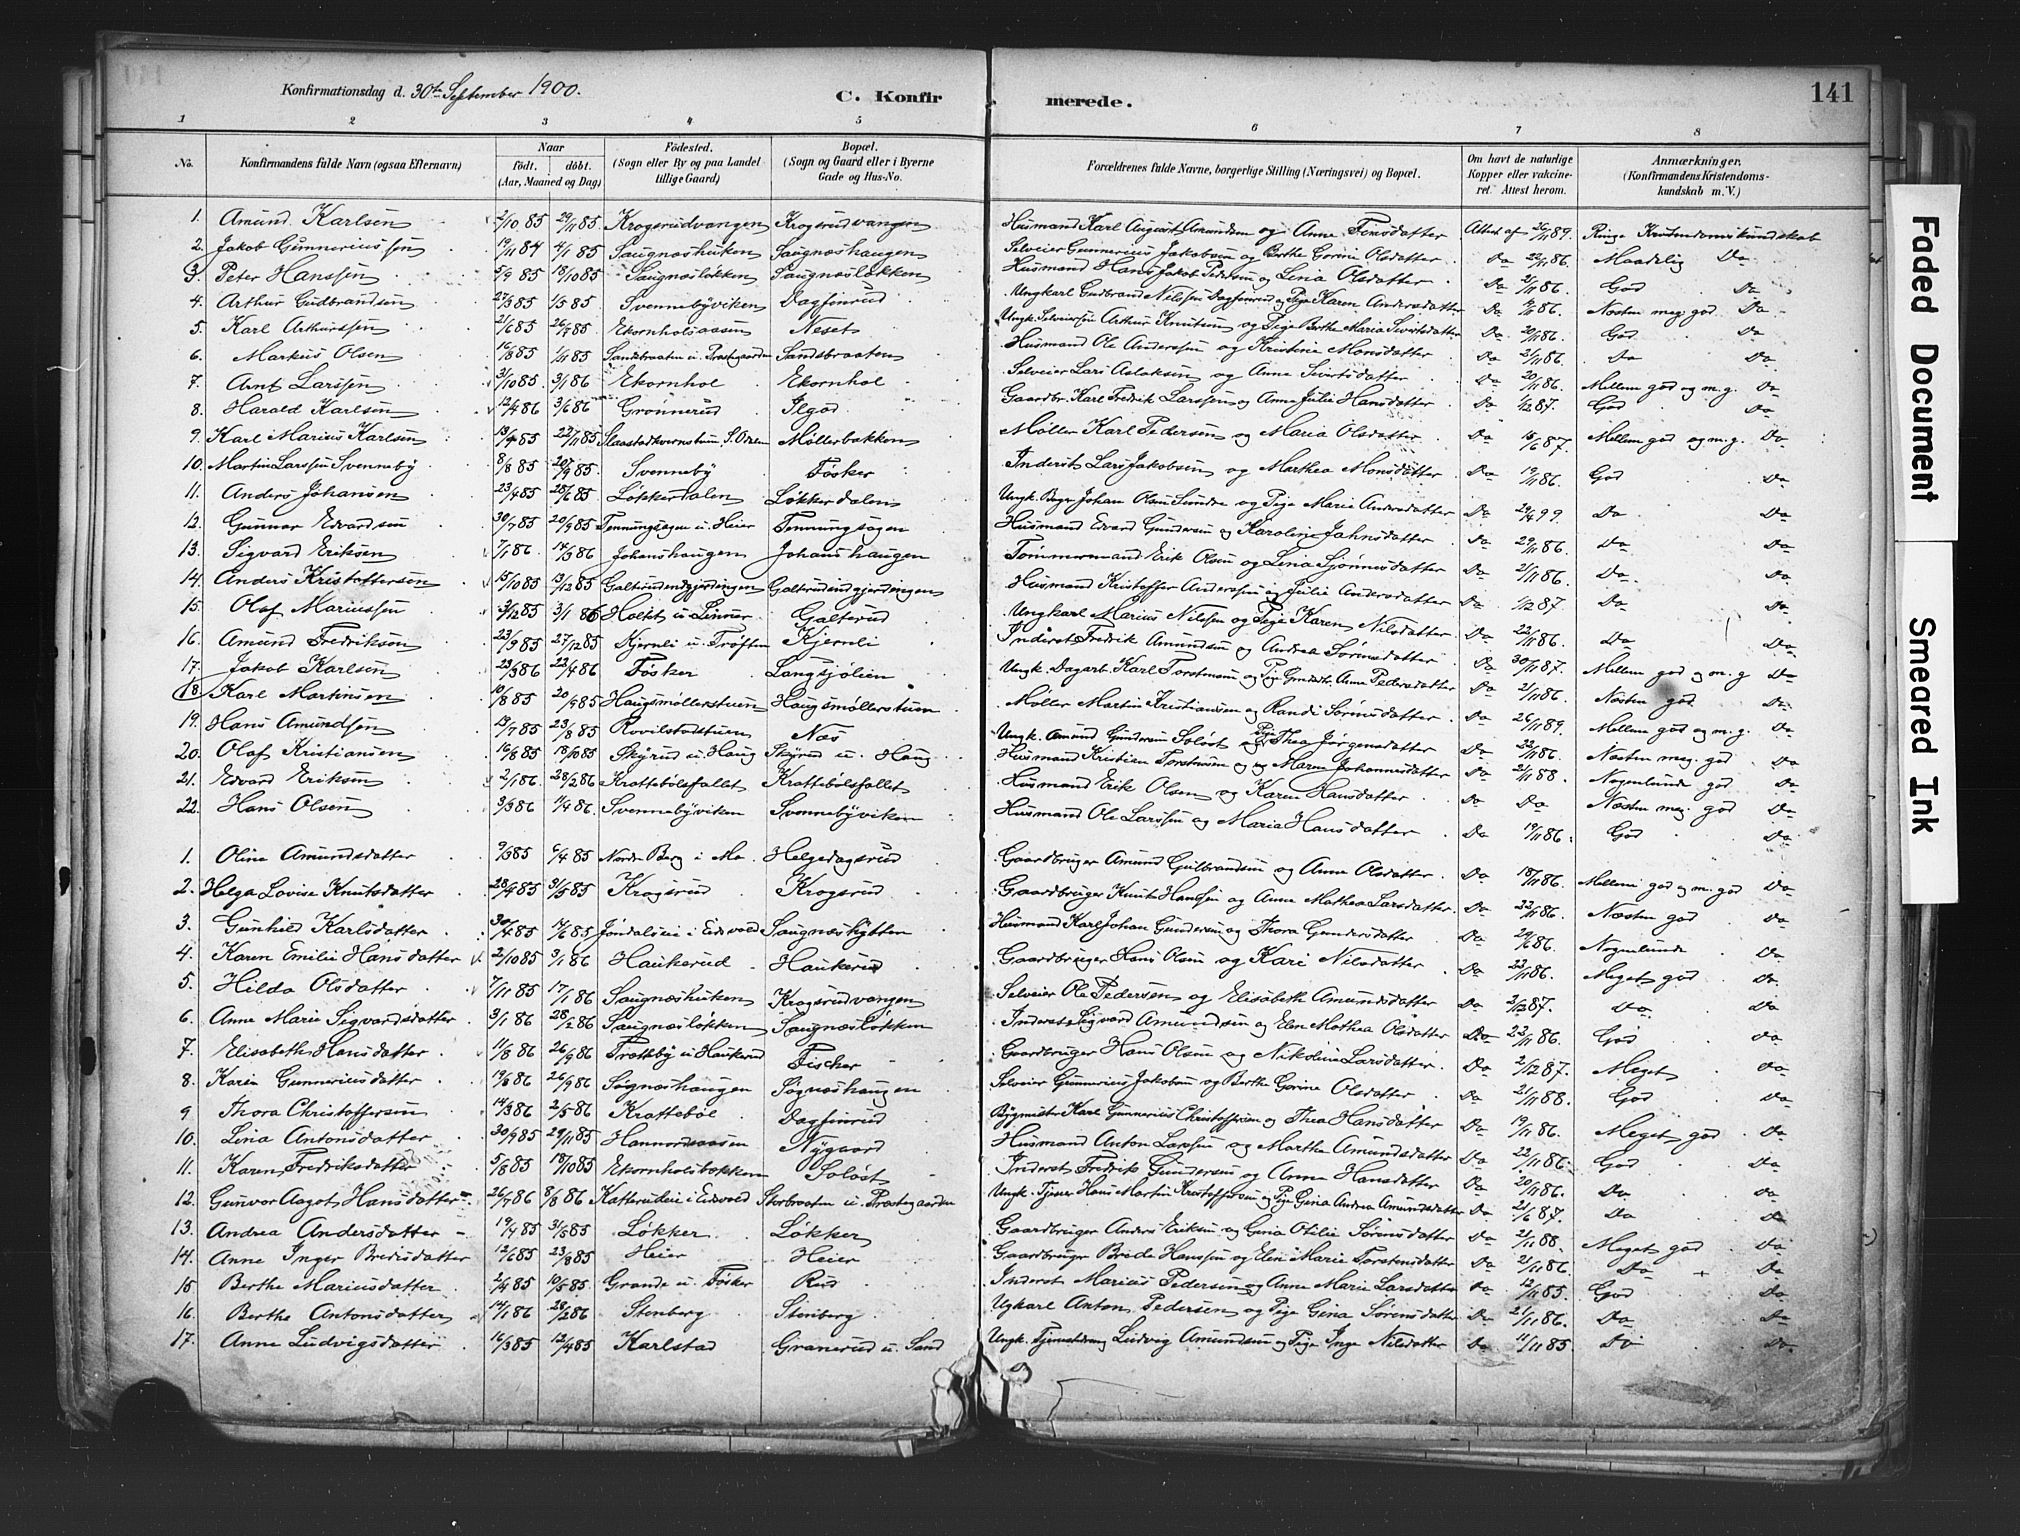 Konfirmationsdag d. 30te September 1900.
C. Konfirmerede.
141
1 2 3 4 5 6 7 8
No. Konfirmandens fulde Navn (ogsaa Efternavn) Naar født. døbt. (Aar, Maaned og Dag) Fødested. (Sogn eller By og paa Landet tillige Gaard) Bopæl. (Sogn og Gaard eller i Byerne Gade og Hus-No. Forældrenes fulde Navne, borgerlige Stilling (Næringsvei) og Bopæl. Om havt de naturlige Kopper eller vakcineret. Attest herom. Anmærkninger. (Konfirmandens Kristendomskundskab m. V.)
1. Amund Karlsen 2/10 85 29/11 85 Krogsrudvangen Krogsrudvangen Husmand Karl August Amundsen og Anne Finsdatter Attest af 26/11 89. Ringe Kristendomskundskab
2. Jakob Gunneriussen 19/11 84 4/1 85 Saugnæshuken Saugnæshaugen Selveier Gunnerius Jakobsen og Berthe Gorine Olsdatter Do 22/11 86. Maadelig Do
3. Peter Hanssen 5/9 85 18/10 85 Saugnæsløkken Saugnæsløkken Husmand Hans Jakob Pedersen og Lina Olsdatter Do 2/11 86. God Do
4. Arthur Gudbrandsen 27/3 85 1/5 85 Svennebyviken Dagfinrud Ungkarl Gudbrand Nilssen Dagfinrud og Pige Karen Andersdatter Do 86. Næsten meg. god Do
5. Karl Arthurssen 21/6 85 26/7 85 Ekornholsaasen Neset Ungk. Selveiersøn Arthur Knutsen og Pige Berthe Maria Sivertsdatter Do 20/11 86. God Do
6. Markus Olsen 16/8 85 1/11 85 Sandsbraaten u. Præstegaarden Sandsbraaten Husmand Ole Anderssen og Kristine Monsdatter Do 2/11 86. Do Do
7. Arnt Larssen 31/10 85 3/1 86 Ekornhol Ekornhol Selveier Lars Aslaksen og Anne Sivertsdatter Do 20/11 86. Mellem god og m. g. Do
8. Harald Karlsen 12/4 86 3/6 86 Grønnerud Ilgod Gaardbr. Karl Fredrik Larssen og Anne Julie Hansdatter Do 1/12 87. God Do
9. Karl Marius Karlsen 13/4 85 85 Slaastadkvernstuen S. Odalen Møllerbakken Møller Karl Pedersen og Maria Olsdatter Do 15/6 87. Mellem god og m. g. Do
10. Martin Larssen Svenneby 8/8 85 20/9 85 Svenneby Fosker Inderst Lars Jakobsen og Marthea Monsdatter Do 19/11 86. God Do
11. Anders Johansen 23/4 85 28/6 85 Løkkerdalen Løkkerdalen Ungk. Bager Johan Olsen Sundre og Pige Marie Andersdatter Do 29/4 99. Do Do
12. Gunnar Edvardsen 30/7 85 20/9 85 Tennungsagen u. Heier Tennungsagen Husmand Edvard Gundersen og Karoline Jahnsdatter Do 29/11 86. Do Do
13. Sigvard Eriksen 7/1 86. 14/3 86 Johanshaugen Johanshaugen Tømmermand Erik Olsen og Lina Sjønnesdatter Do 2/11 86. Do Do
14. Anders Kristoffersen 15/10 85 13/12 85 Galterudengjerdingen Galterudengjerdingen Husmand Kristoffer Anderssen og Julie Andersdatter Do 1/12 87. Do Do
15. Olaf Mariussen 3/12 85 3/1 86 Holtet u Linner Galterud Ungkarl Marius Nilssen og Pige Karen Nilsdatter Do 22/11 86. Do Do
16. Amund Fredriksen 23/9 85 27/12 85 Kjernli u. Trøften Kjernli Inderst Fredrik Amundsen og Andrea Sørensdatter Do 30/11 87. Mellem god og m. g Do
17. Jakob Karlsen 23/3 86 22/4 86 Fosker Langsjølien Ungk. Dagarb. Karl Torstensen og Pige Anne Pedersdatter Do 2/11 86. Næsten god Do
18. Karl Martinsen 10/8 85 20/9 85 Haugsmøllerstuen Haugsmøllerstuen Møller Martin Kristiansen og Randi Sørensdatter Do 26/11 89. Mellem god og m. g. Do
19. Hans Amundsen 13/7 85 23/8 85 Rovilstadstuen Næs Ungk. Amund Gundersen Soløst og Pige Thea Jørgensdatter Do 22/11 86. Næsten meg. god Do
20. Olaf Kristiansen 16/8 85 18/10 85 Skyrud u. Haug Skyrud u. Haug Husmand Kristian Torstensen og Maren Johannesdatter Do 2/11 88. Nogenlunde god Do
21. Edvard Eriksen 2/1 86. 28/2 86 Krattebølsfallet Krattebølsfallet Husmand Erik Olsen og Karen Hansdatter Do Do Næsten meg. god Do
22. Hans Olsen 3/3 86 11/4 86. Svennebyviken Svennebyviken Husmand Ole Larssen og Maria Hansdatter Do 19/11 86. God Do
1. Olina Amundsdatter 9/3 85 6/4 85 Nordr Berg i Helgedagsrud Gaardbruger Amund Gulbrandsen og Anne Olsdatter Do 18/11 86. Mellem god og m. god Do
2. Helga Lovise Knutsdatter 28/4 85 31/5 85 Krogsrud Krogsrud Gaardbruger Knut Hanssen og Anne Mathea Larsdatter Do 22/11 86. Næsten god Do
3. Gunhild Karlsdatter 30/4 85 14/6 85 Jøndalseie i Eidsvold Saugnæshytten Husmand Karl Johan Gundersen og Thora Gundersdatter Do 29/6 86. Nogenlunde Do
4. Karen Emilie Hansdatter 2/10 85 3/1 86 Haukerud Haukerud Gaardbruger Hans Olsen og Kari Nilsdatter Do 23/11 86. Meget god Do
5. Hilda Olsdatter 7/11 85 17/1 86 Saugnæshuken Krogsrudvangen Selveier Ole Pedersen og Elisabeth Amundsdatter Do 2/12 87. Do Do
6. Anne Marie Sigvardsdatter 3/1 86 28/2 86 Saugnæsløkken Saugnæsløkken Inderst Sigvard Amundsen og Elen Mathea Olsdatter Do 22/11 86. God Do
7. Elisabeth Hansdatter 11/8 86 26/9 86 Trøttby u Haukerud Fischer Gaardbruger Hans Olsen og Nikoline Larsdatter Do 2/12 87. Meget Do
8. Karen Gunneriusdatter 19/8 86 26/9 86 Sognæshaugen Sognæshaugen Selveier Gunnerius Jakobsen og Berthe Gorine Olsdatter Do 21/11 88. God Do
9. Thora Christoffersen 14/3 86 2/5 86 Krattebøl Dagfinrud Bygmester Karl Gunnerius Christoffersen og Thea Hansdatter Do 19/11 86. Meget god Do
10. Lina Antonsdatter 30/9 85 29/11 85 Hannordsaasen Nygaard Husmand Anton Larssen og Marthe Amundsdatter Do 22/11 86. God Do
11. Karen Fredriksdatter 5/8 85 18/10 85 Ekornholsbakken Soløst Inderst Fredrik Gundersen og Anne Hansdatter Do 20/11 86. Do Do
12. Gunvor Aagot Hansdatter 26/7 86 8/8 86 Katterudeie i Eidsvold Storbraaten u. Præstegaarden Ungk. Tjener Hans Martin Kristoffersen og Pige Gina Andrea Amundsdatter Do 21/6 87. Do Do
13. Andrea Andersdatter 19/4 85 31/5 85 Løkker Løkker Gaardbruger Anders Eriksen og Gina Otilie Sørensdatter Do 2/11 88. Meget god Do
14. Anne Inger Bredesdatter 12/6 85 23/8 85 Heier Heier Gaardbruger Brede Hanssen og Elen Marie Torstensdatter Do 2/11 86. Do Do
15 Berthe Mariusdatter 2/4 85 10/5 85. Grande u. Fosker Rud Inderst Marius Pedersen og Anne Marie Larsdatter Do 12/11 85. God Do
16. Berthe Antonsdatter 14/1 86 28/2 86 Stenberg Stenberg Ugkarl Anton Pedersen og Pige Gina Sørensdatter Do 21/11 86. Do Do
17. Anne Ludvigsdatter 16/3 85 12/4 85 Karlstad Granerud u. Sand Ungk. Ludvig Amundsen og Pige Inge Nilsdatter Do 11/11 85. Do Do
Faded Document
Smeared Ink